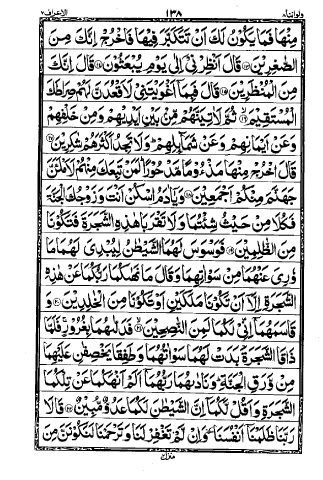 الاعراف ٧ ١٣٨ ولواننا ٨
مِنْهَا فَمَا يَكُوْنُ لَكَ اَنْ تَتَكَبَّرَ فِيْهَا فَاخْرُجْ اِنَّكَ مِنَ
الصّٰغِرِيْنَ ﴿١٣﴾ قَالَ اَنْظِرْنِيْۤ اِلٰى يَوْمِ يُبْعَثُوْنَ ﴿١٤﴾ قَالَ اِنَّكَ
مِنَ الْمُنْظَرِيْنَ ﴿١٥﴾ قَالَ فَبِمَاۤ اَغْوَيْتَنِيْ لَاَقْعُدَنَّ لَهُمْ صِرَاطَكَ
الْمُسْتَقِيْمَ ﴿١٦﴾ ثُمَّ لَاٰتِيَنَّهُمْ مِّنْۢ بَيْنِ اَيْدِيْهِمْ وَمِنْ خَلْفِهِمْ
وَعَنْ اَيْمَانِهِمْ وَعَنْ شَمَآئِلِهِمْ ؕ وَلَا تَجِدُ اَكْثَرَهُمْ شٰكِرِيْنَ ﴿١٧﴾
قَالَ اخْرُجْ مِنْهَا مَذْءُوْمًا مَّدْحُوْرًا ؕ لَمَنْ تَبِعَكَ مِنْهُمْ لَاَمْلَئَنَّ
جَهَنَّمَ مِنْكُمْ اَجْمَعِيْنَ ﴿١٨﴾ وَيٰۤاٰدَمُ اسْكُنْ اَنْتَ وَزَوْجُكَ الْجَنَّةَ
فَكُلَا مِنْ حَيْثُ شِئْتُمَا وَلَا تَقْرَبَا هٰذِهِ الشَّجَرَةَ فَتَكُوْنَا
مِنَ الظّٰلِمِيْنَ ﴿١٩﴾ فَوَسْوَسَ لَهُمَا الشَّيْطٰنُ لِيُبْدِيَ لَهُمَا مَا
وٗرِيَ عَنْهُمَا مِنْ سَوْاٰتِهِمَا وَقَالَ مَا نَهٰىكُمَا رَبُّكُمَا عَنْ هٰذِهِ
الشَّجَرَةِ اِلَّاۤ اَنْ تَكُوْنَا مَلَكَيْنِ اَوْ تَكُوْنَا مِنَ الْخٰلِدِيْنَ ﴿٢٠﴾
وَقَاسَمَهُمَاۤ اِنِّيْ لَكُمَا لَمِنَ النّٰصِحِيْنَ ﴿٢١﴾ فَدَلّٰىهُمَا بِغُرُوْرٍ ۚ فَلَمَّا
ذَاقَا الشَّجَرَةَ بَدَتْ لَهُمَا سَوْاٰتُهُمَا وَطَفِقَا يَخْصِفٰنِ عَلَيْهِمَا
مِنْ وَّرَقِ الْجَنَّةِ ؕ وَنَادٰىهُمَا رَبُّهُمَاۤ اَلَمْ اَنْهَكُمَا عَنْ تِلْكُمَا
الشَّجَرَةِ وَاَقُلْ لَّكُمَاۤ اِنَّ الشَّيْطٰنَ لَكُمَا عَدُوٌّ مُّبِيْنٌ ﴿٢٢﴾ قَالَا
رَبَّنَا ظَلَمْنَاۤ اَنْفُسَنَا ٚ وَاِنْ لَّمْ تَغْفِرْ لَنَا وَتَرْحَمْنَا لَنَكُوْنَنَّ مِنَ
منزل